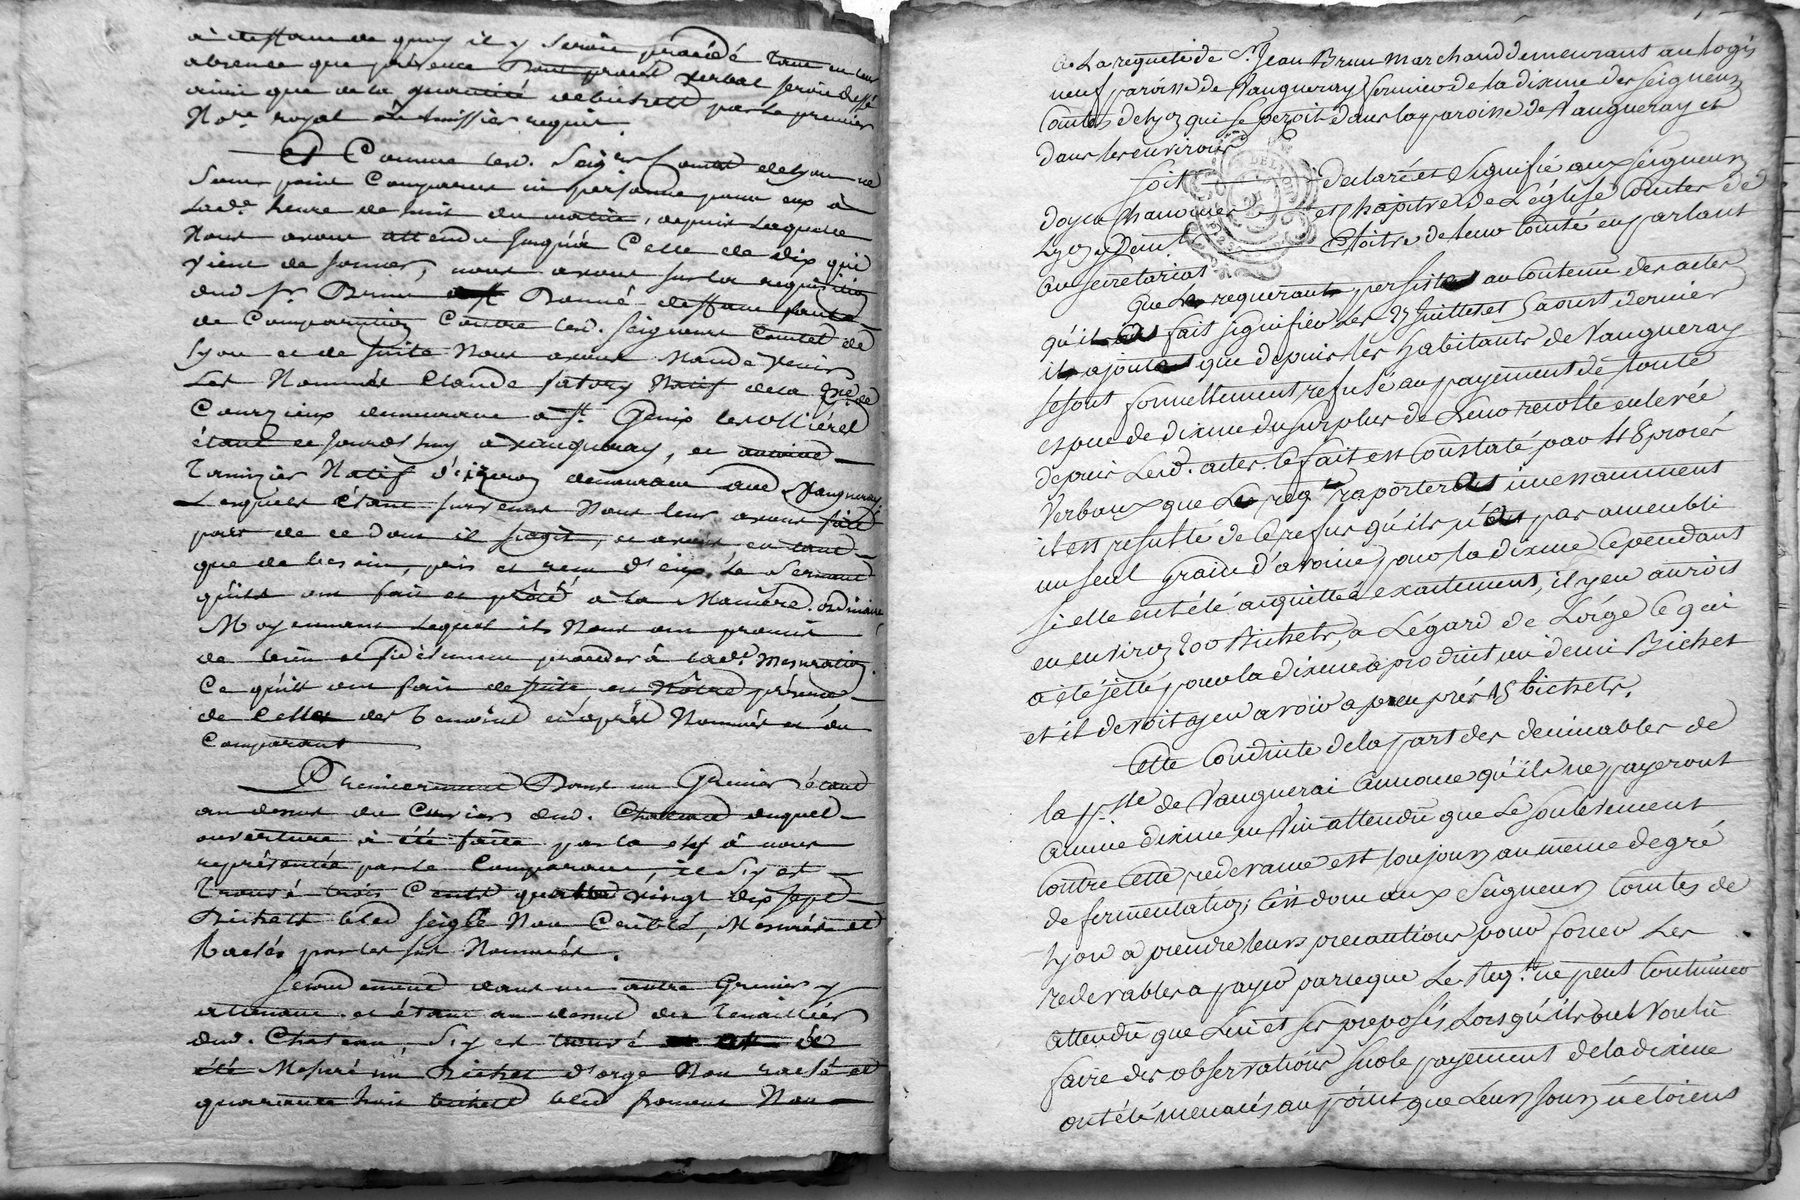 absence que présence dont procès verbal seroit dressé
ainsi que de la quantité de bichets par le premier
No.re royal ou huissier requis.
et Comme lesd. Seigrs Comtes de Lyon ne
sont point Comparus ni personne pour eux à
lad.e heure de huit du matin, depuis laquelle
Nous avons attendu jusqu'à Celle de dix qui
vient de sonner, nous avons sur la requisition
dud Sr. Brun donné deffaut faute
de Comparution Contre lesd. Seigneurs Comtes de
Lyon et de suite Nous avons Mandé venir
Les Nommés Claude Natif de la p.sse de
Courzieux demeurant à St. Genix les ollières
étant ce jourd'huy à vaugneray, et antoine
Natif d'izeron demeurant aud Vaugneray
Lesquels étant survenus Nous leur avons fait
part de ce dont il s'agit, et avons en tant
que de besoin, pris et recu d'eux le serment
qu'ils ont fait et prêté à la Manière ordinaire,
Moyennant lequel ils Nous ont promis
de bien et fidèlement proceder à lad.e mesuration
Ce qu'ils ont fait de suite en Nôtre présence
de Celles des temoins cy après Nommés et du
Comparant
Premierement Dans un Grenier étant
au dessus du Cuvier dud. Chateau duquel
ouverture à été faite par la clef à nous
représentée par le Comparant, il s'y est
trouvé trois Cents quatre vingt dix sept
Bichets bled seigle Non Criblé, Mesurés et
Raclés par les sus Nommés.
Secondement dans un autre Grenier y
attenant et étant au dessus des
dud. Chateau, s'y est trouvé
été Mesuré un Bichet d'orge Non raclé et
quarante huit bichets bled froment Non
A La requete de Sr. Jean Brun Marchand demeurant au logis
neuf paroisse de Vaugneray fermier de la dixme des Seigneurs
Comtes de Lyon qui se perçoit dans la paroisse de Vaugneray et
dans les environs
Soit declaré et Signifié aux Seigneurs
doyen Chanoines et Chapitre de L'église Comtes de
Lyon dans Cloitre de leur Comté en parlant
au secretariat
Que Le requerant persiste au Contenu des actes
qu'il a fait signifier Les 27 Juillet et 5 aoust dernier
il ajoute que depuis les habitants de Vaugneray
se sont formellement refusé au payement de toute
espece de dixme du surplus de Leur recolte enlevée
depuis Lesd. actes. le fait est Constaté par 48 procès
Verbaux que Le req.t raportera incessamment
il est resulté de ce refus qu'il n'a pas ameubli
un seul Grain d'avoine pour la dixme Cependant
si elle eut été acquittée exactement, il y en auroit
eu environ 200 Bichets, a L'égard de L'orge Ce qui
a été jetté pour la dixme a produit un demi Bichet
et il devoit y en avoir a peu près 15 bichets.
Cette Conduite de la part des decimables de
la p.sse de Vaugnerai annonce qu'ils ne payeront
aucune dixme en Vin attendu que Le soulevement
Contre Cette redevance est toujours au meme degré
de fermentation; C'est donc aux Seigneurs Comtes de
Lyon a prendre leurs precautions pour forcer Les
redevables a payer parceque Le Req.t ne peut Continuer
attendu que Lui et ses preposés Lorsqu'ils ont Voulu
faire des observations sur le payement de la dixme
ont été menacés au point que Leurs jours n'etoient